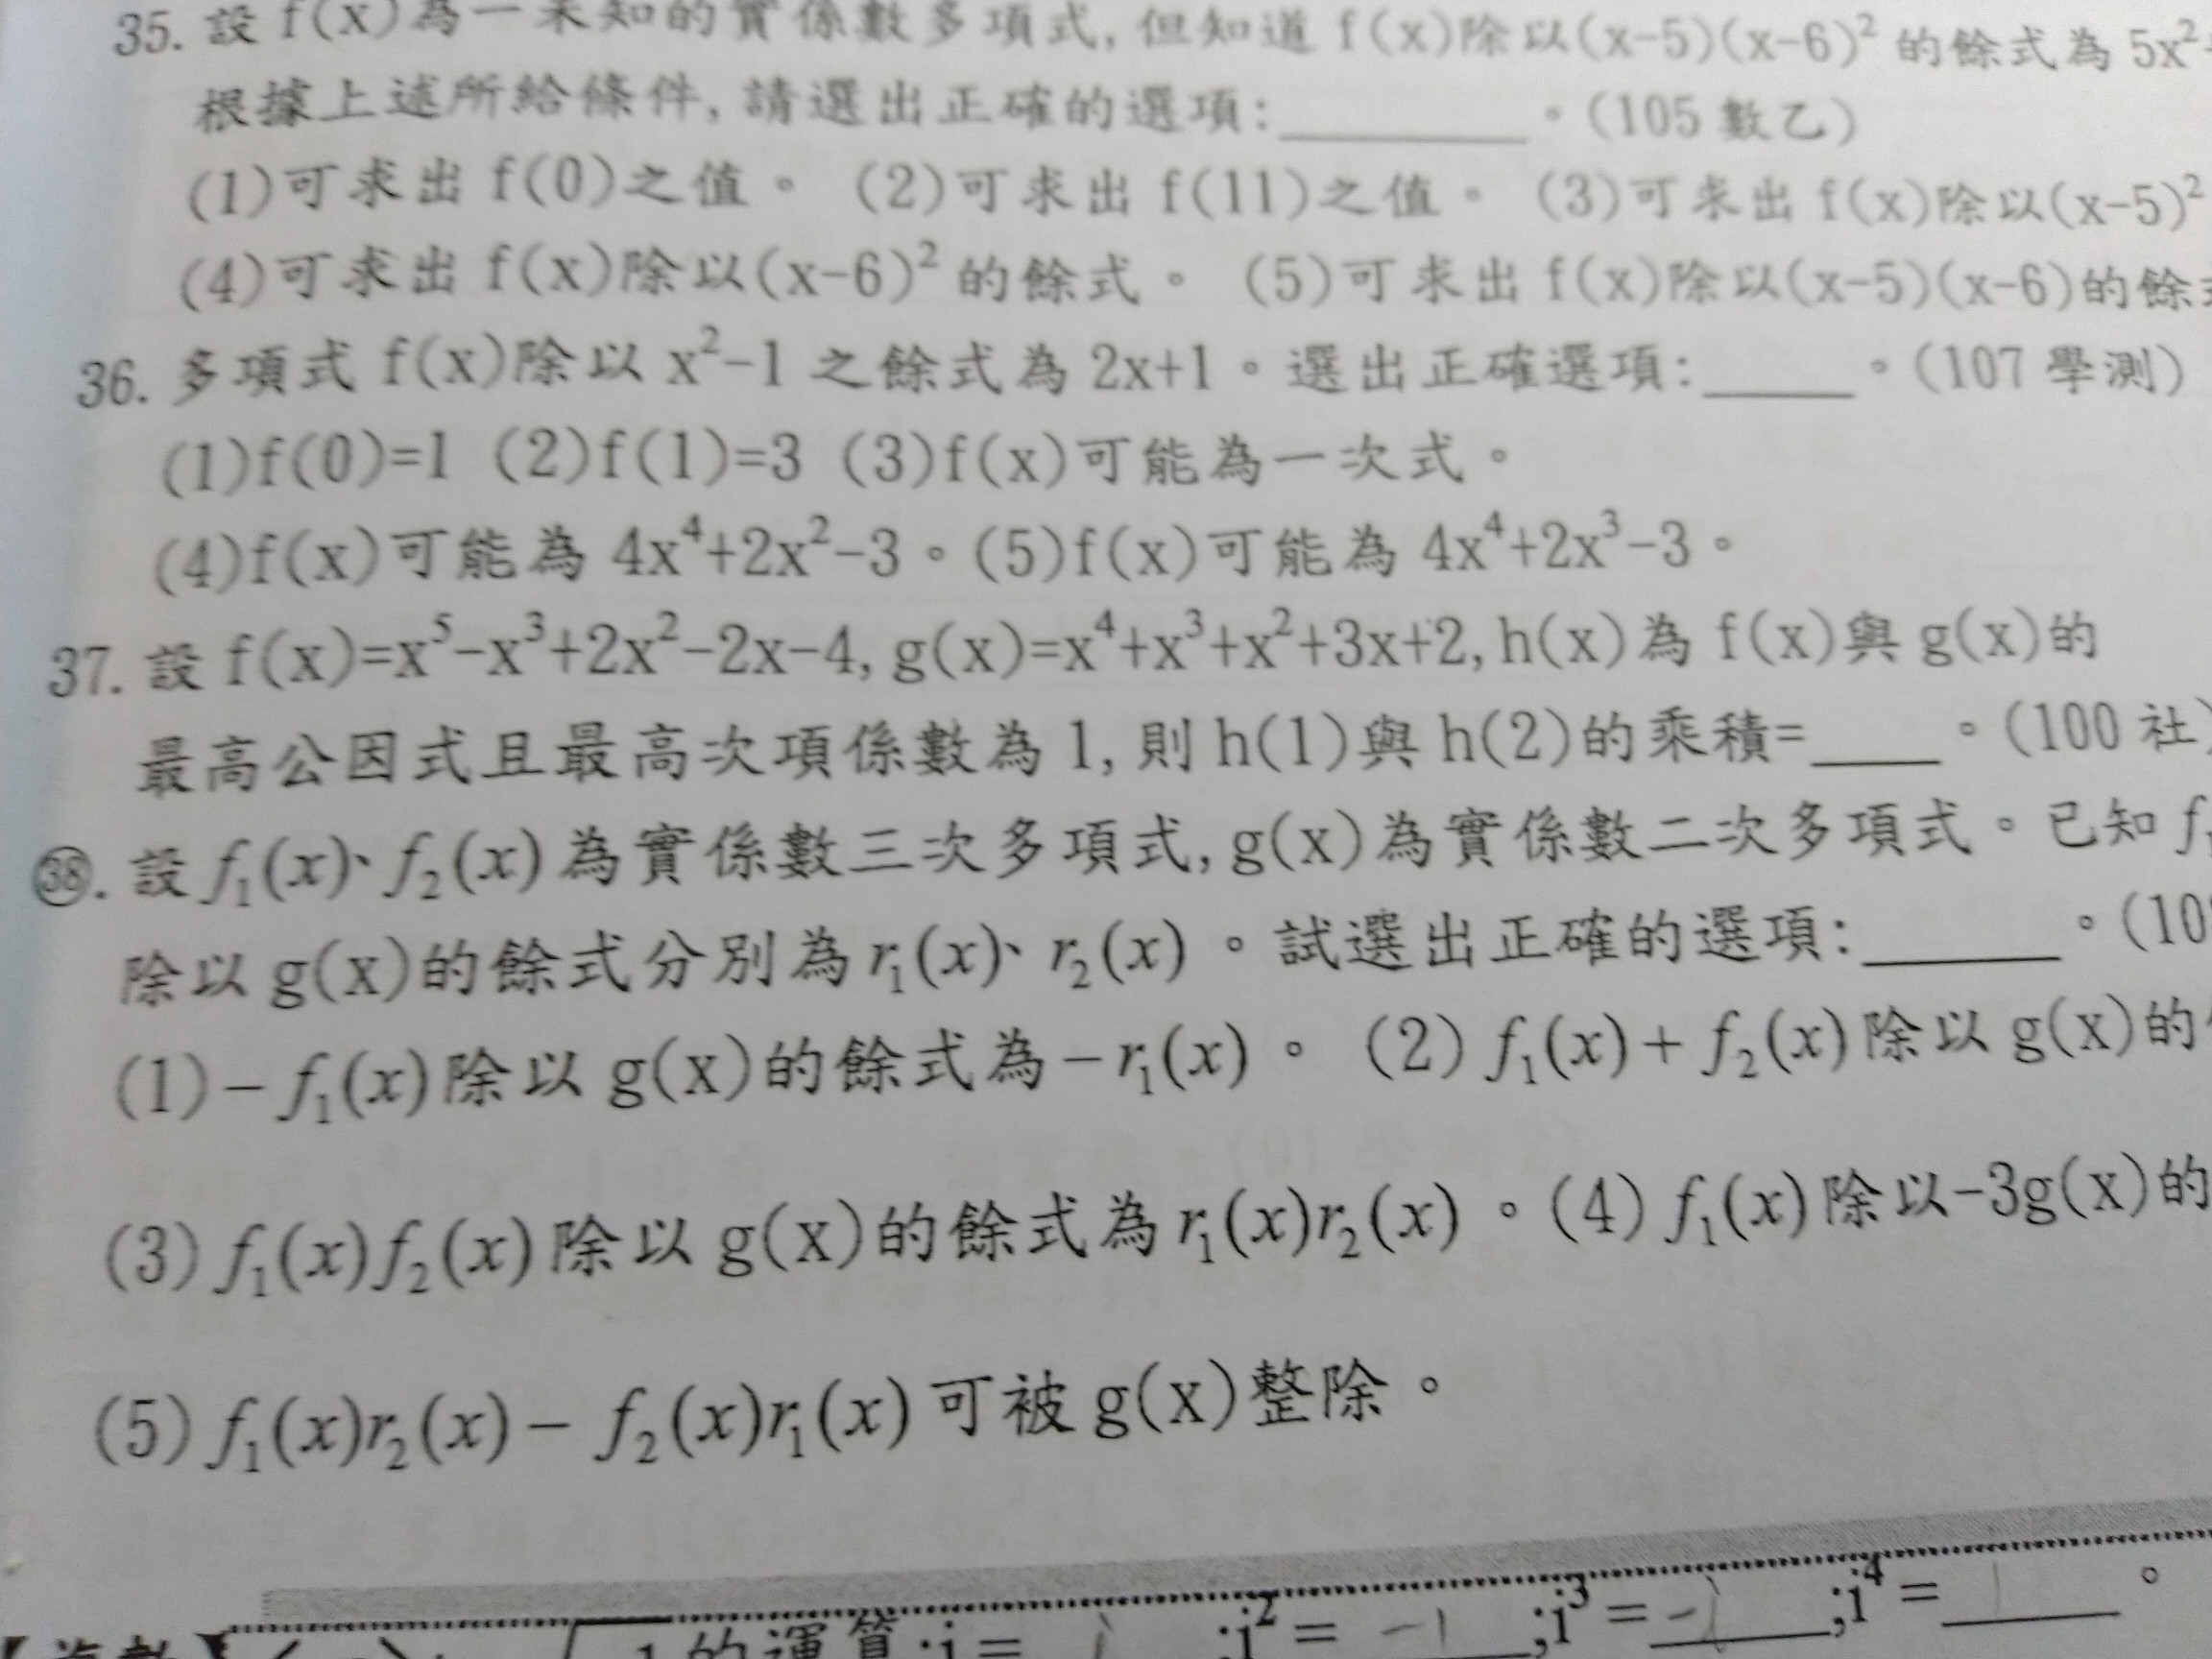 35. 設 f(x)為一未知的實係數多項式, 但知道 f(x)除以(x-5)(x-6)² 的餘式為 5x²
根據上述所給條件, 請選出正確的選項:________。(105 數乙)
(1)可求出 f(0)之值。 (2)可求出 f(11)之值。 (3)可求出 f(x)除以(x-5)²
(4)可求出 f(x)除以(x-6)² 的餘式。 (5)可求出 f(x)除以(x-5)(x-6)的餘
36. 多項式 f(x)除以 x²-1 之餘式為 2x+1。選出正確選項:_____。(107 學測)
(1)f(0)=1 (2)f(1)=3 (3)f(x)可能為一次式。
(4)f(x)可能為 4x⁴+2x²-3。(5)f(x)可能為 4x⁴+2x³-3。
37. 設 f(x)=x⁵-x³+2x²-2x-4, g(x)=x⁴+x³+x²+3x+2, h(x)為 f(x)與 g(x)的
最高公因式且最高次項係數為 1, 則 h(1)與 h(2)的乘積=____。(100 社)
㊳. 設 f₁(x)、f₂(x)為實係數三次多項式, g(x)為實係數二次多項式。已知 f₁
除以 g(x)的餘式分別為 r₁(x)、r₂(x)。試選出正確的選項:______。(10
(1)－f₁(x)除以 g(x)的餘式為－r₁(x)。 (2) f₁(x)+f₂(x)除以 g(x)的
(3) f₁(x)f₂(x)除以 g(x)的餘式為 r₁(x)r₂(x)。(4) f₁(x)除以-3g(x)的
(5) f₁(x)r₂(x)－f₂(x)r₁(x)可被 g(x)整除。
的運算:i= i ;i²= -1 ;i³= -i ;i⁴= 1 。